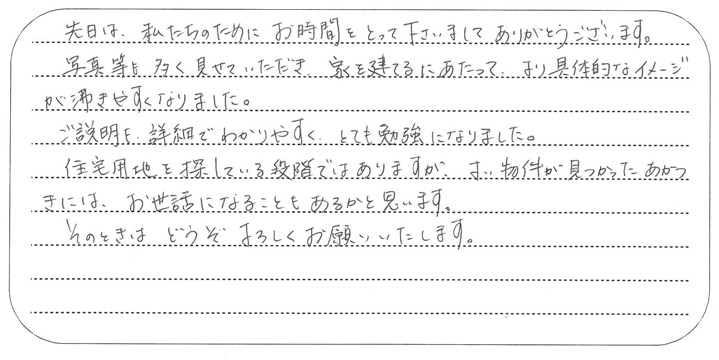 先日は、私たちのために お時間を とって下さいまして ありがとうございます。
写真等も 多く見せていただき、家を建てるにあたって、より具体的なイメージ
が沸きやすくなりました。
ご説明も、詳細で わかりやすく、とても勉強になりました。
住宅用地を探している段階ではありますが、よい物件が見つかった あかつ
きには、お世話になることも あるかと思います。
そのときは どうぞ よろしくお願いいたします。